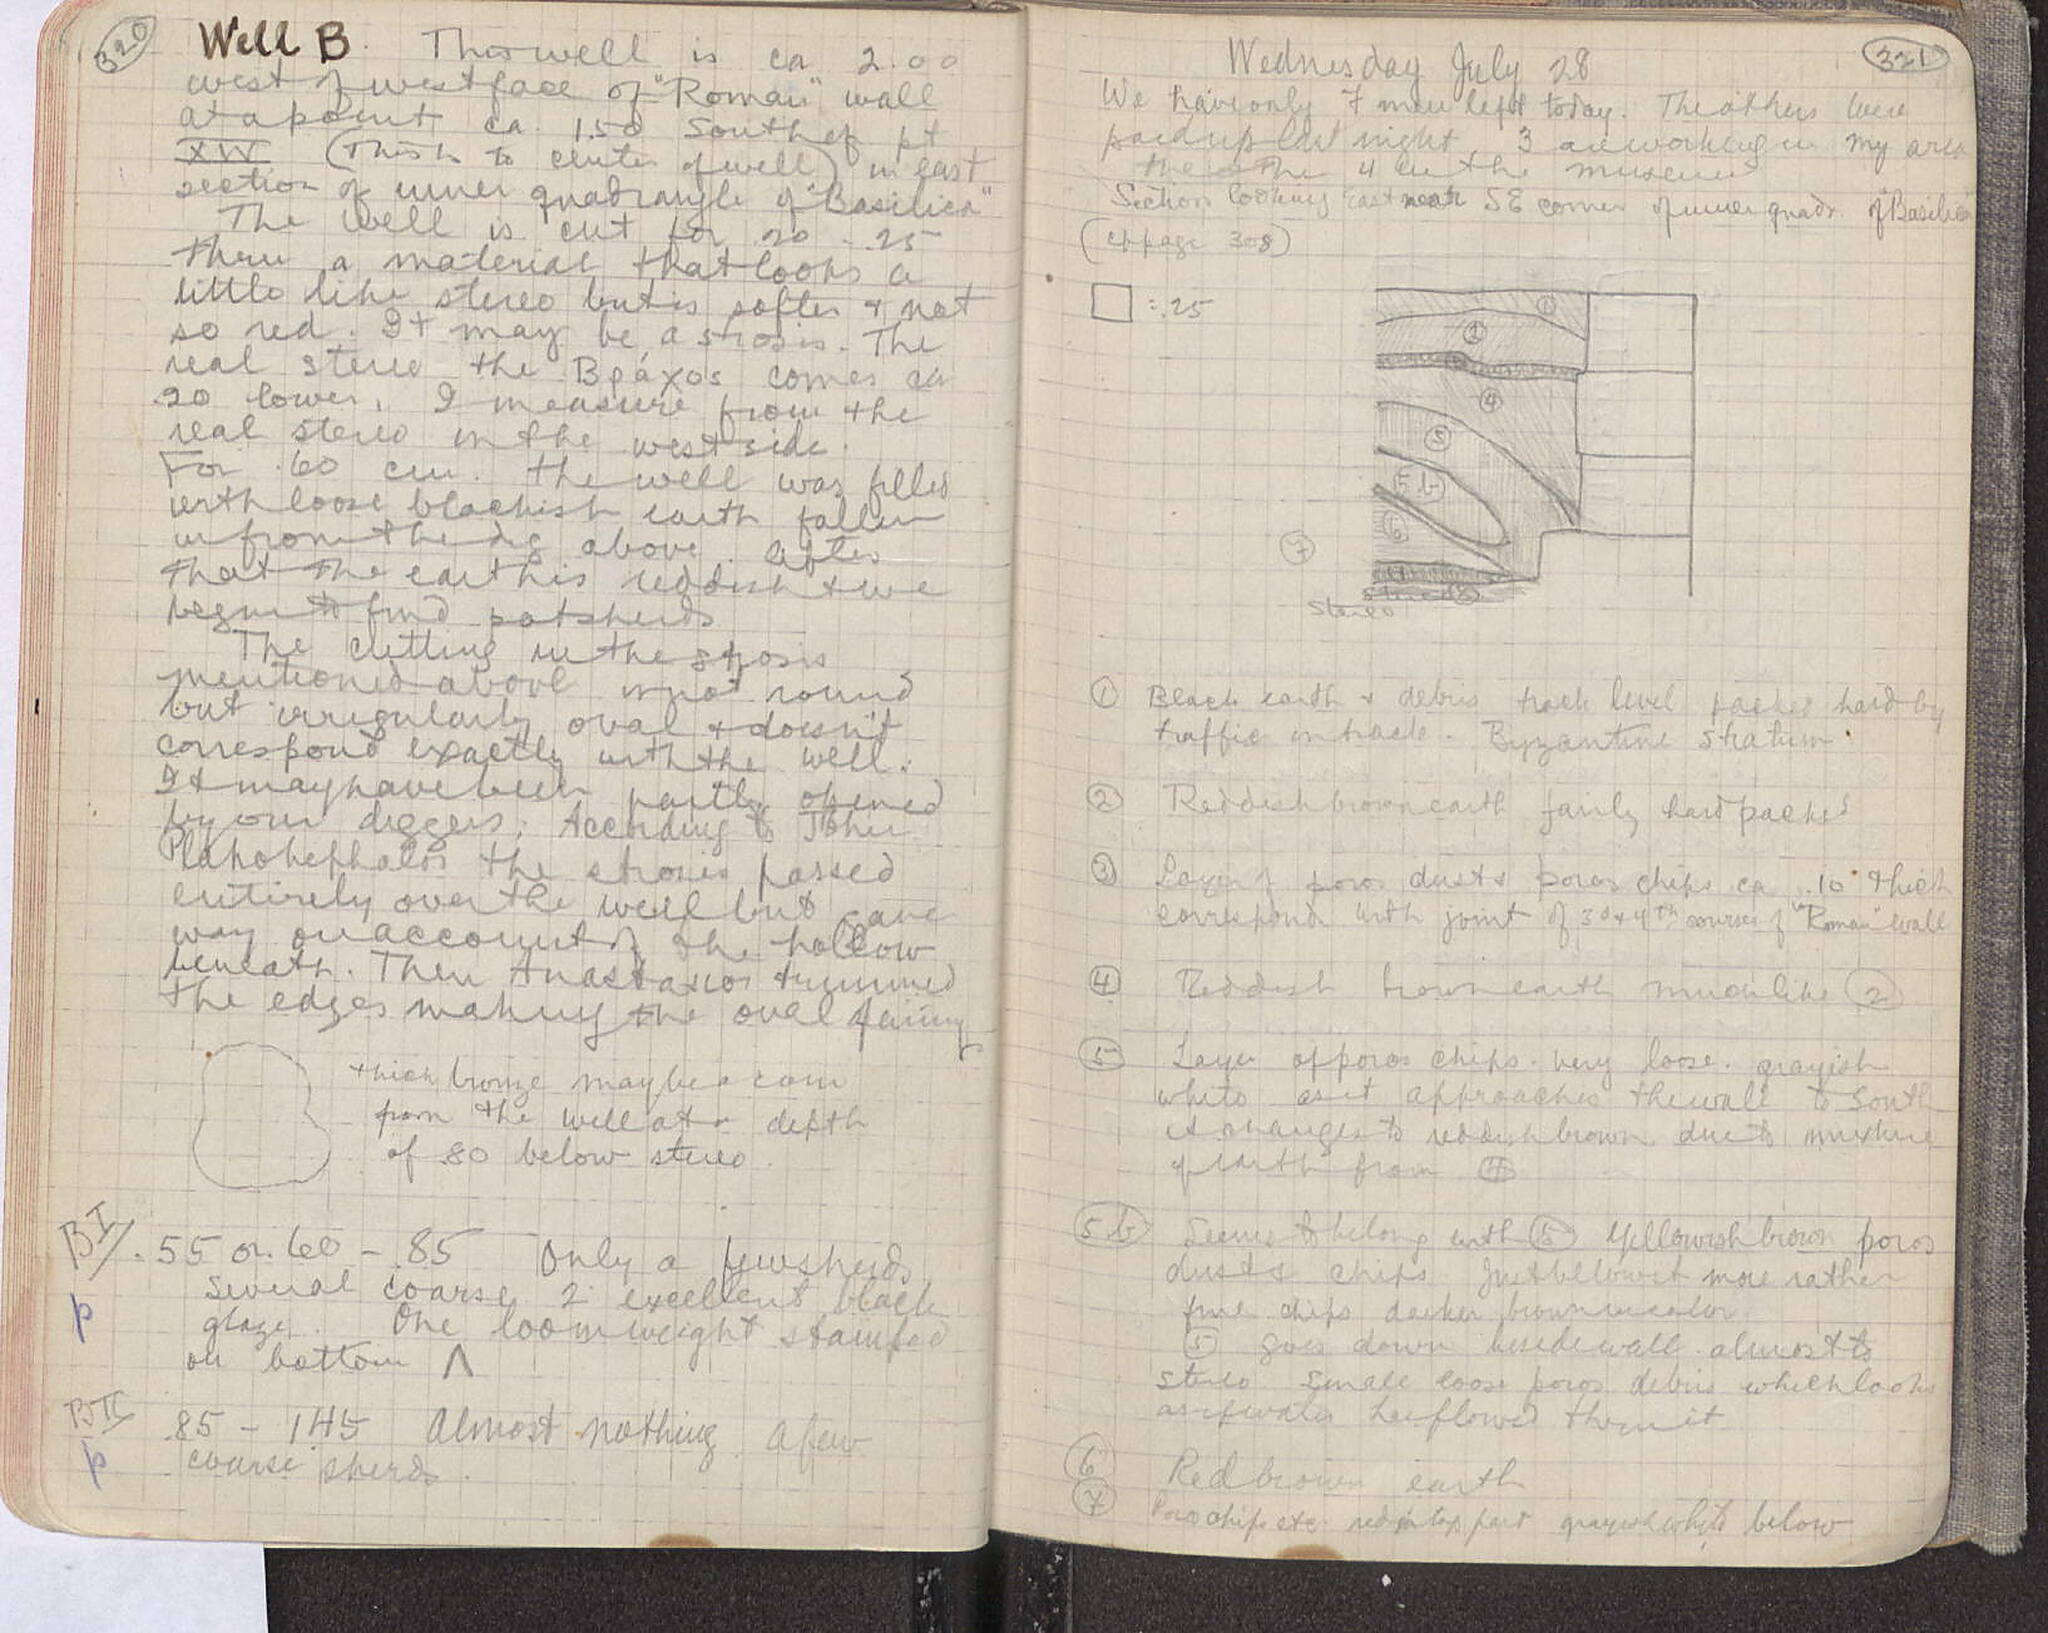 320
Well B. This well is ca 2.00
west of west face of "Roman" wall
at a point ca. 1.50 South of pt
XW (This is to center of well) in east
section of inner quadrangle of "Basilica"
The well is cut for .20 - .25
thru a material that looks a
little like stereo but is softer & not
so red. It may be a strosis. The
real stereo the Βράχος comes ca
.20 lower. I measure from the
real stereo on the west side.
For .60 cm. the well was filled
with loose blackish earth fallen
in from the dig above. After
that the earth is reddish & we
begin to find potsherds
The cutting in the strosis
mentioned above is not round
but irregularly oval & doesn't
correspond exactly with the well.
It may have been partly opened
by our diggers; According to John
the strosis passed
entirely over the well but gave
way on account of the hollow
beneath. Then Anastasios trimmed
the edges making the oval
thick bronze maybe a coin
from the well at a depth
of .80 below stereo.
BI/ .55 or .60 - .85 Only a few sherds
several coarse 2 excellent black
p glaze. One loomweight stamped
on bottom Λ
BII .85 - 1.45 Almost nothing. A few
p coarse sherds.
321
Wednesday July 28
We have only 7 men left today. The others were
paid up last night. 3 are working in my area
the other 4 in the museum
Section looking East near SE corner of inner quadr. of "Basilica"
(cf page 308)
= .25
1
2
4
5
5b
6
7
stereo
① Black earth & debris track level packed hard by
traffic on track. Byzantine stratum.
② Reddish brown earth fairly hard packed
③ Layer of poros dust & poros chips ca .10 thick
correspond with joint of 3d & 4th courses of "Roman" wall
④ Reddish brown earth much like ②
⑤ Layer of poros chips. very loose. grayish
white as it approaches the wall to South
it changes to reddish brown due to mixture
of earth from ④
5b Seems to belong with ⑤ Yellowish brown poros
dust & chips Just below it more rather
fine chips darker brown in color.
⑤ goes down beside wall almost to
stereo small loose poros debris which looks
as if water had flowed thru it
⑥ Red brown earth
⑦ Poros chips etc. red in top part grayish white below